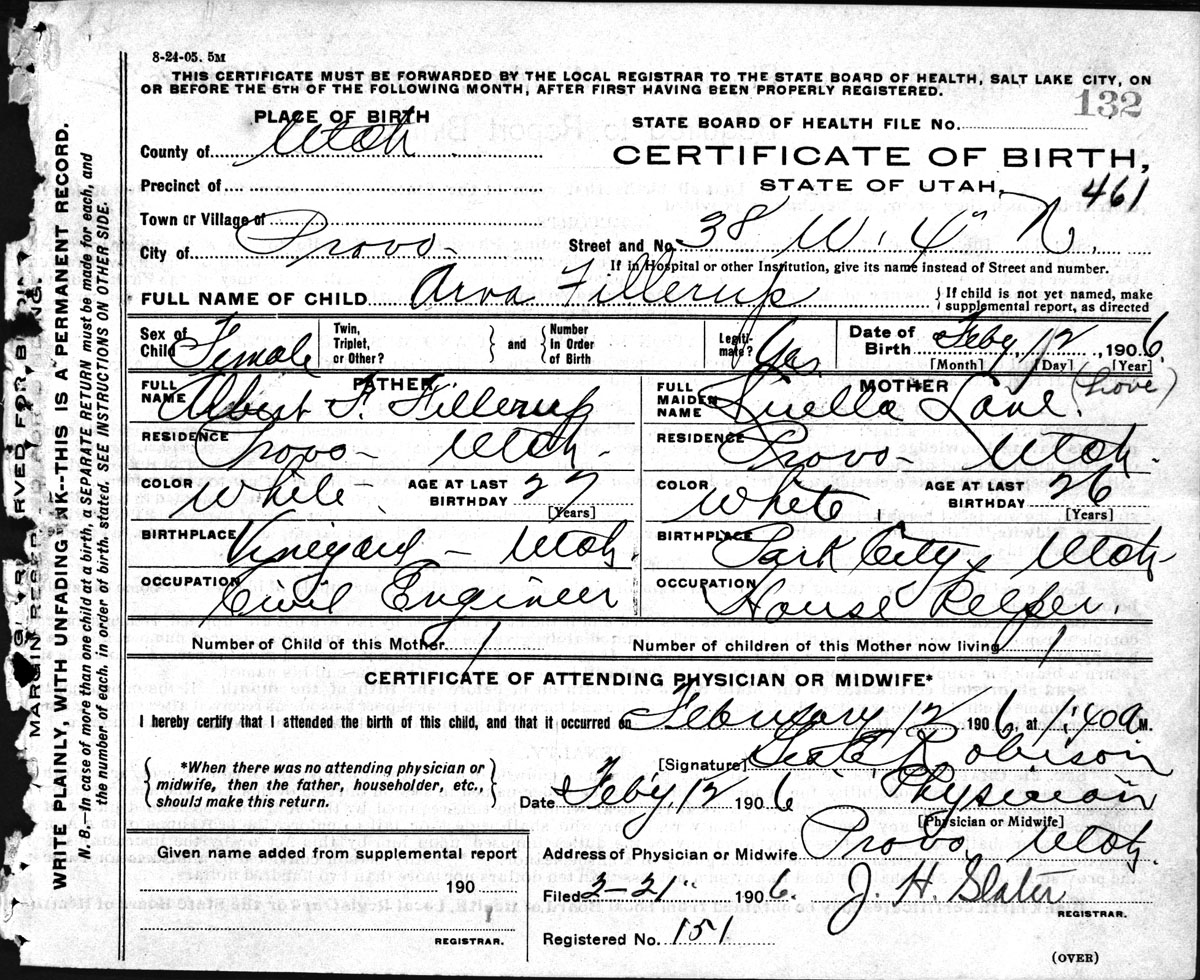 8-24-05. 5M
THIS CERTIFICATE MUST BE FORWARDED BY THE LOCAL REGISTRAR TO THE STATE BOARD OF HEALTH, SALT LAKE CITY, ON
OR BEFORE THE 5TH OF THE FOLLOWING MONTH, AFTER FIRST HAVING BEEN PROPERLY REGISTERED.
132
PLACE OF BIRTH
STATE BOARD OF HEALTH FILE No.
County of Utah
CERTIFICATE OF BIRTH,
Precinct of
STATE OF UTAH.
461
Town or Village of
City of Provo
Street and No. 38 W. 4" N.
If in Hospital or other Institution, give its name instead of Street and number.
FULL NAME OF CHILD Arva Fillerup
{ If child is not yet named, make
supplemental report, as directed
Sex of
Child Female
Twin,
Triplet,
or Other?
} and {
Number
In Order
of Birth
Legiti-
mate? Yes
Date of
Birth Feby, 12, 1906.
[Month] [Day] [Year]
FATHER
FULL
NAME Albert F. Fillerup
RESIDENCE Provo - Utah -
COLOR White
AGE AT LAST
BIRTHDAY 27
[Years]
BIRTHPLACE Vineyard - Utah.
OCCUPATION Civil Engineer
MOTHER
FULL
MAIDEN
NAME Luella Love. (Love)
RESIDENCE Provo Utah -
COLOR White
AGE AT LAST
BIRTHDAY 26
[Years]
BIRTHPLACE Park City, Utah
OCCUPATION House Keeper.
Number of Child of this Mother 1
Number of children of this Mother now living 1
CERTIFICATE OF ATTENDING PHYSICIAN OR MIDWIFE*
I hereby certify that I attended the birth of this child, and that it occurred on February 12 1906, at 1:40 a M.
{ *When there was no attending physician or
midwife, then the father, householder, etc.,
should make this return. }
[Signature] Robinson
Date Feby, 12 1906
Physician
[Physician or Midwife]
Given name added from supplemental report
190
REGISTRAR.
Address of Physician or Midwife Provo Utah.
Filed 3-21" 1906.
J. H. Slater
REGISTRAR.
Registered No. 151
(OVER)
MARGIN RESERVED FOR BINDING.
WRITE PLAINLY, WITH UNFADING INK--THIS IS A PERMANENT RECORD.
N. B.—In case of more than one child at a birth, a SEPARATE RETURN must be made for each, and
the number of each, in order of birth, stated. SEE INSTRUCTIONS ON OTHER SIDE.